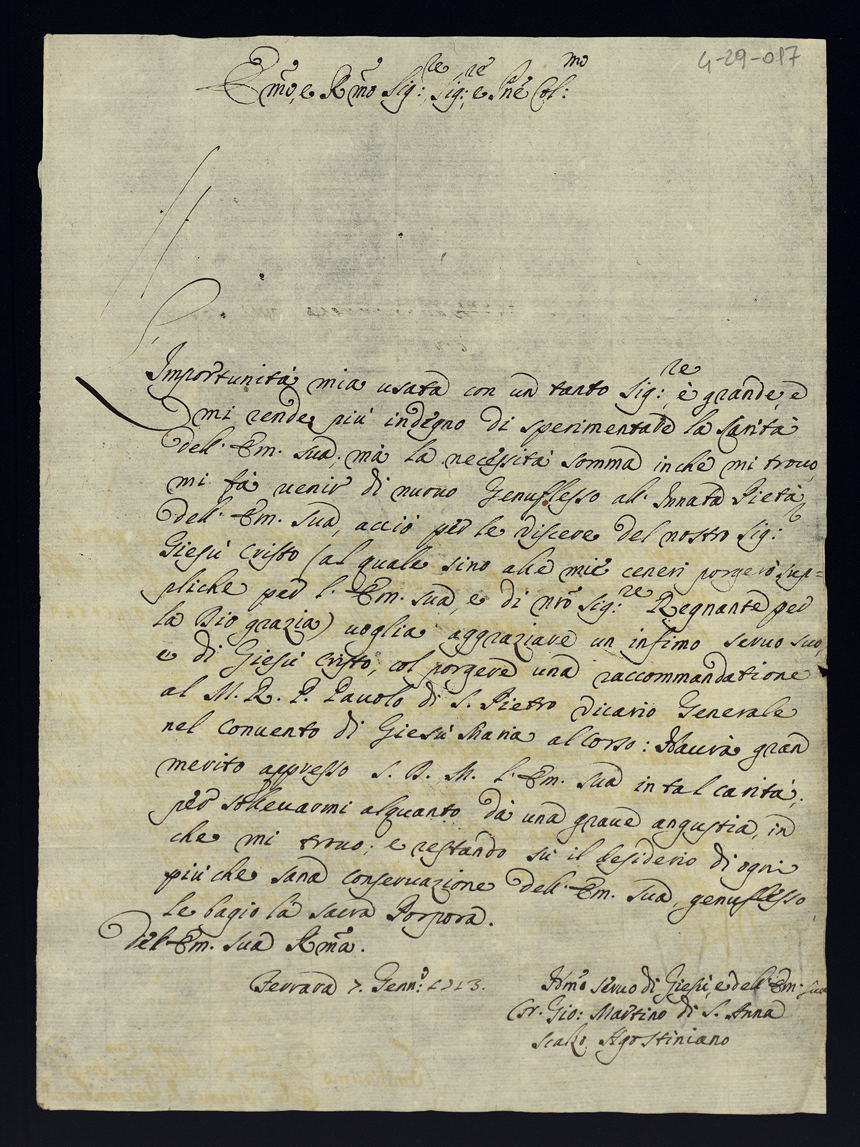 4-29-017
Emo, e Rmo Sig:re, Sig:re e Pne Col:mo
L'Importunità mia usata con un tanto Sig:re, è grande, e
mi rende più indegno di sperimentare la Carità
dell'Em. Sua; mà la necessità somma inche mi trovo,
mi fà venir di nuovo Genuflesso all'Innata Pietà
dell'Em. Sua, acciò per le viscere del nostro Sig:
Giesù Cristo (al quale sino alle mie ceneri porgerò sup=
pliche per l'Em. Sua, e di nro Sig:re Regnante per
la Dio grazia) voglia aggraziare un infimo servo suo,
e di Giesù Cristo, col porgere una raccommandatione
al M. R. P. Pavolo di S. Pietro Vicario Generale
nel Convento di Giesù Maria al Corso: Haverà gran
merito appresso S. D. M. l'Em. Sua in tal carità,
per sollevarmi alquanto dà una grave angustia, in
che mi trovo; e restando sù il desiderio di ogni
più che sana conservazione dell'Em. Sua, genuflesso
le bagio la sacra Porpora.
Dell'Em. Sua Rma.
Ferrara 7. Genn:o 1713.
Hmo servo di Giesù, e dell'Em. Sua
Fr. Gio: Martino di S. Anna
Scalzo Agostiniano